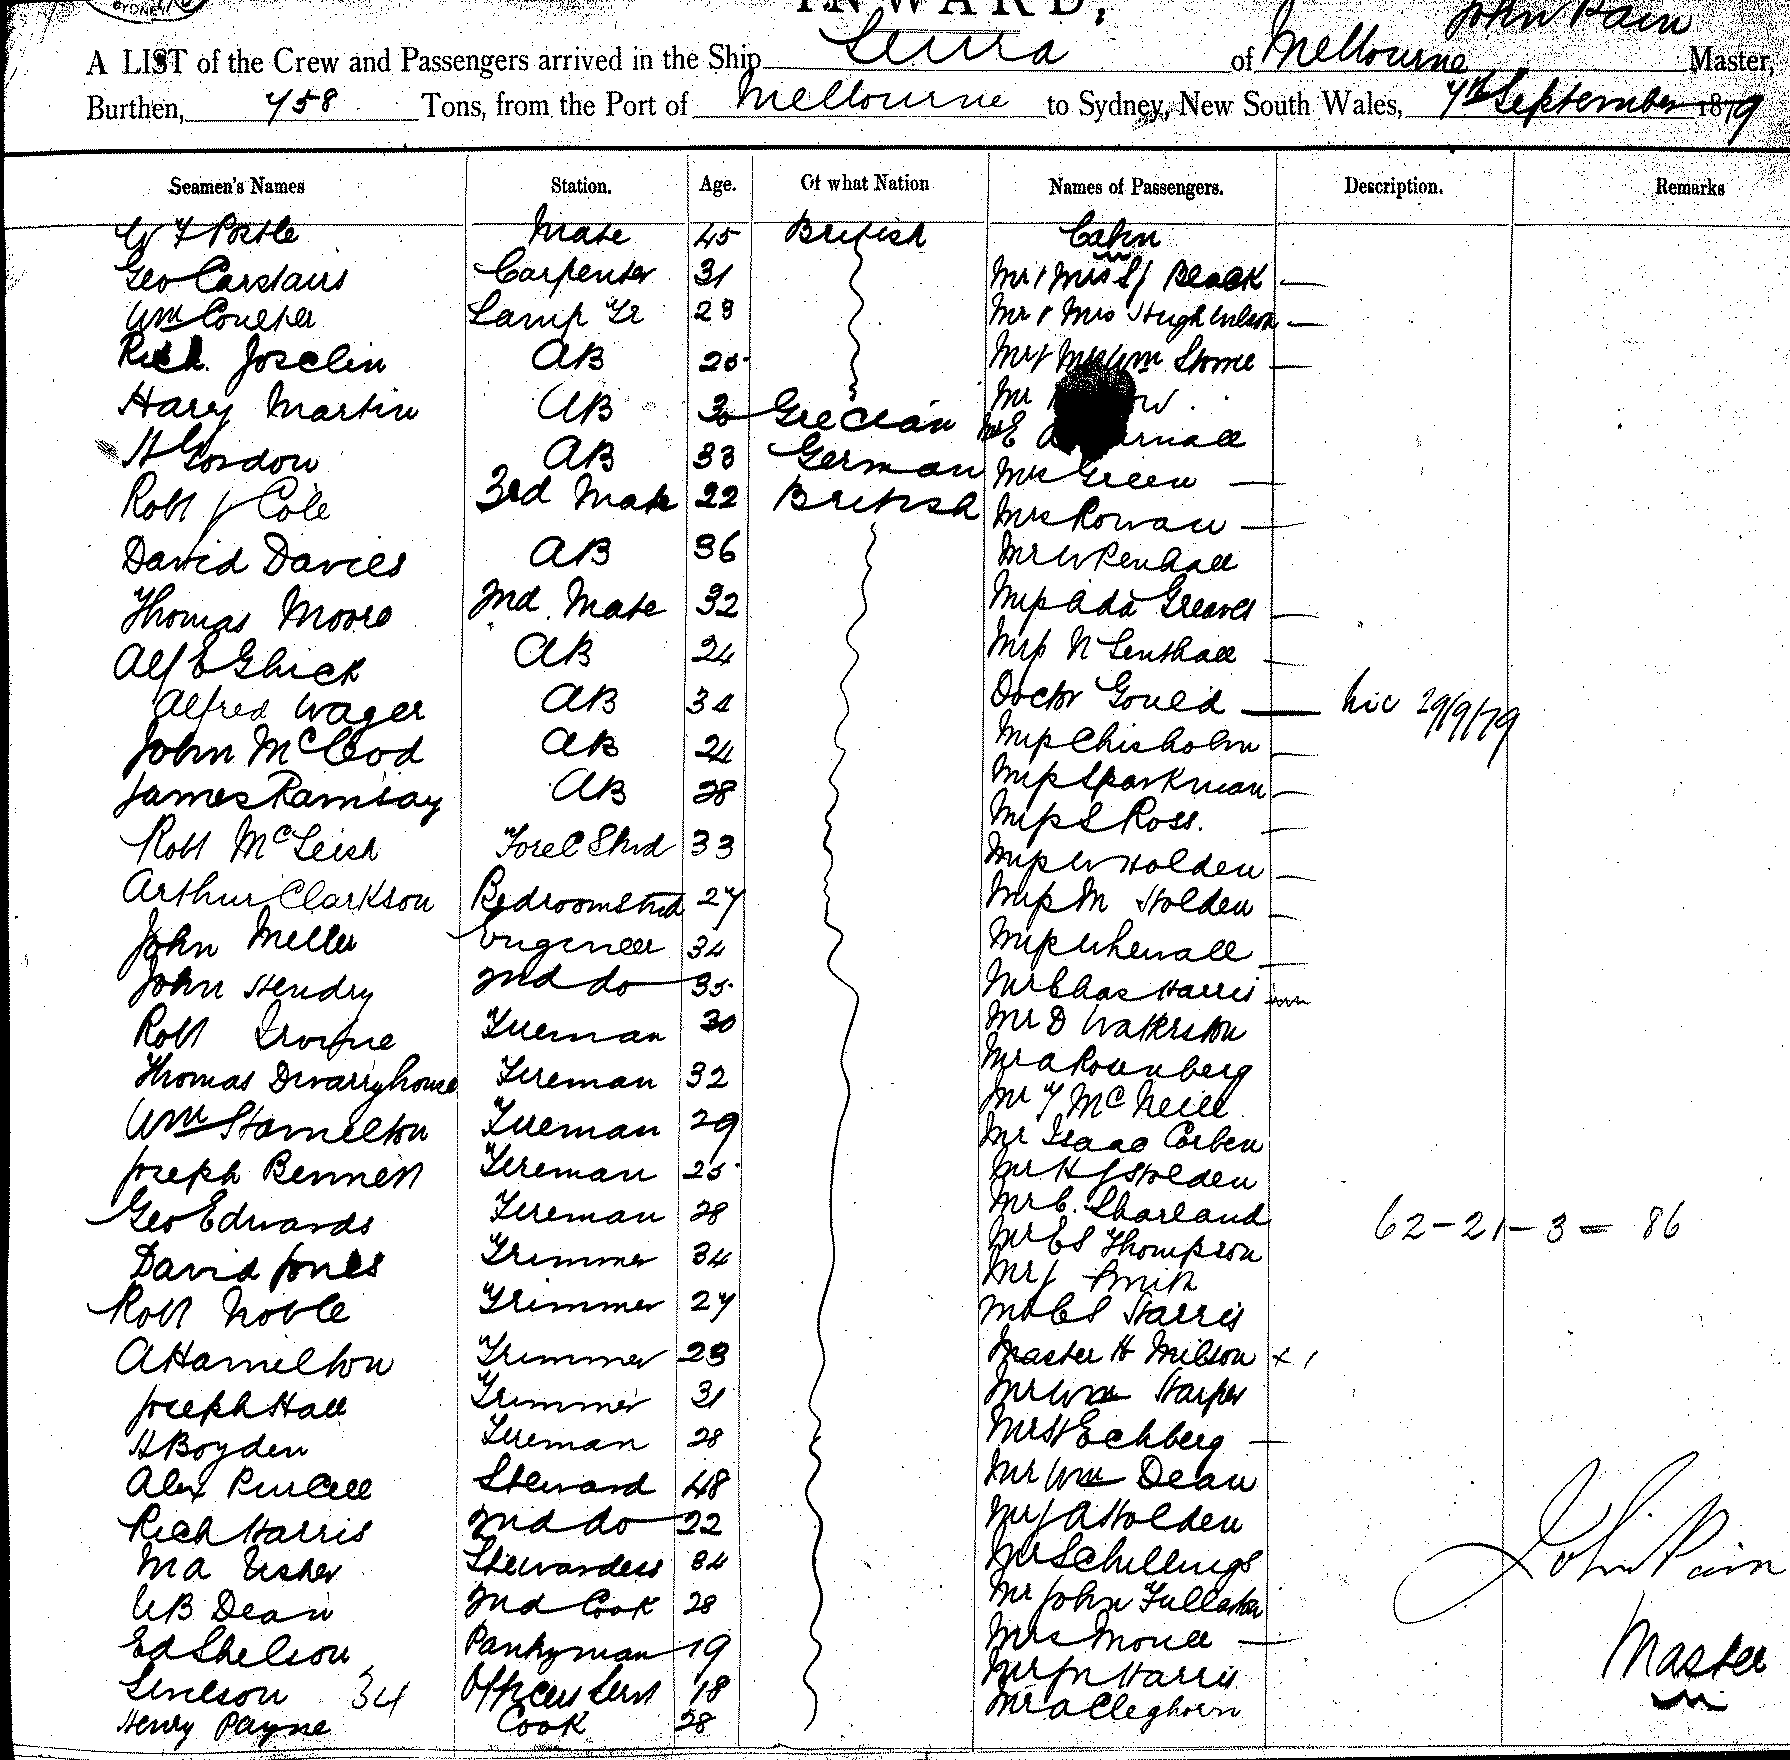 SYDNEY
INWARD,
John Pain
A LIST of the Crew and Passengers arrived in the Ship of Melbourne Master,
Burthen, 458 Tons, from the Port of Melbourne to Sydney, New South Wales, 7th September 1879
Seamen's Names Station. Age. Of what Nation Names of Passengers. Description. Remarks
Mate 45 British Cabin
Geo Carstairs Carpenter 31 Mr & Mrs Black
Wm Coulter Lamp Tr 28 Mr & Mrs Hugh Wilson
Rich Joselin AB 25 Mr & Mrs Wm
Harry Martin AB 30 Grecian Mr
H Gordon AB 33 German
Robt J Cole 3rd Mate 22 British Mrs Green
David Davies AB 36 Mrs Rowan
Thomas Moore 2nd Mate 32 Mr W Penhall
Alf E AB 24 Miss Ada Greaves
Alfred Wager AB 34 Miss N Lenthall
John McLeod AB 24 Doctor Gould 29/9/79
James Ramsay AB 28 Miss Chisholm
Robt McLeish ForeC Stwd 33 Miss Sparkman
Arthur Clarkson Bedroom Stwd 27 Miss S Ross.
John Miller Engineer 34 Miss W Holden
John Hendry 2nd do 35 Miss M Holden
Robt Irvine Fireman 30 Miss Whewall
Thomas Dwarryhouse Fireman 32 Mr Chas Harris
Wm Hamilton Fireman 29 Mr D Watterston
Joseph Bennett Fireman 25 Mr A Rosenberg
Geo Edwards Fireman 28 Mr McNeill
David Jones Trimmer 34 Mr Isaac Corben
Robt Noble Trimmer 27 Mr H J Holden
A Hamilton Trimmer 28 Mr C. Sharland 62-21-3= 86
Joseph Hall Trimmer 31 Mr CS Thompson
H Boyden Fireman 28 Mr J Smith
Alex Purcell Steward 48 CS Harris
Rich Harris 2nd do 22 Master H Milson x 1
M A Usher Stewardess 34 Mr Wm Harper
Dean 2nd Cook 28 Mr H Eichberg
Ed Shelson Pantryman 19 Mr Wm Dean
34 Officers Servt 18 Mr J A Holden
Henry Payne Cook 28 Mr Schillings
Mr John Fullarton
Mrs
Mr Jn Harris
Mr A Cleghorn
John Pain
Master